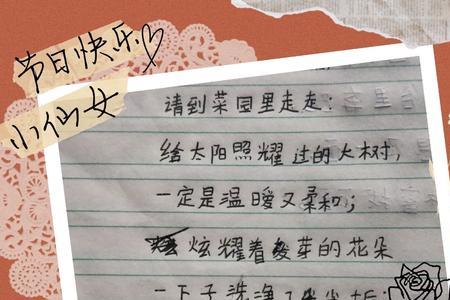 节日快乐
小仙女
请到菜园里走走：
给太阳照耀过的大树，
一定是温暖又柔和；
炫耀着发芽的花朵
一下子洗净了